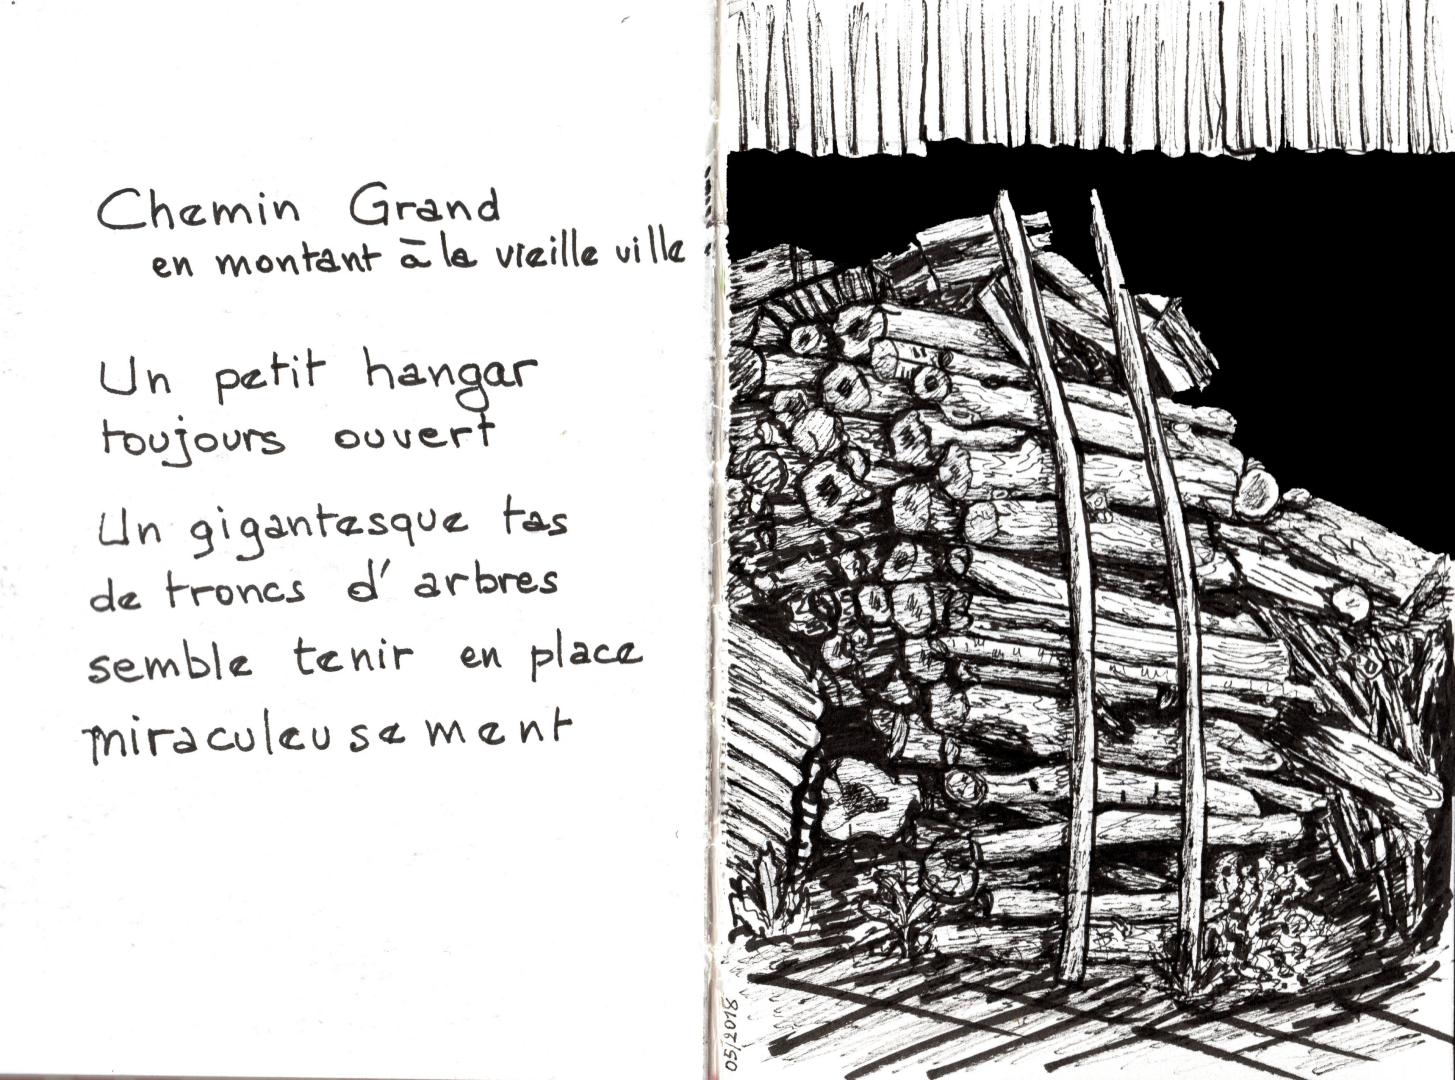 Chemin Grand
en montant à la vieille ville
Un petit hangar
toujours ouvert
Un gigantesque tas
de troncs d'arbres
semble tenir en place
miraculeusement
05/2018